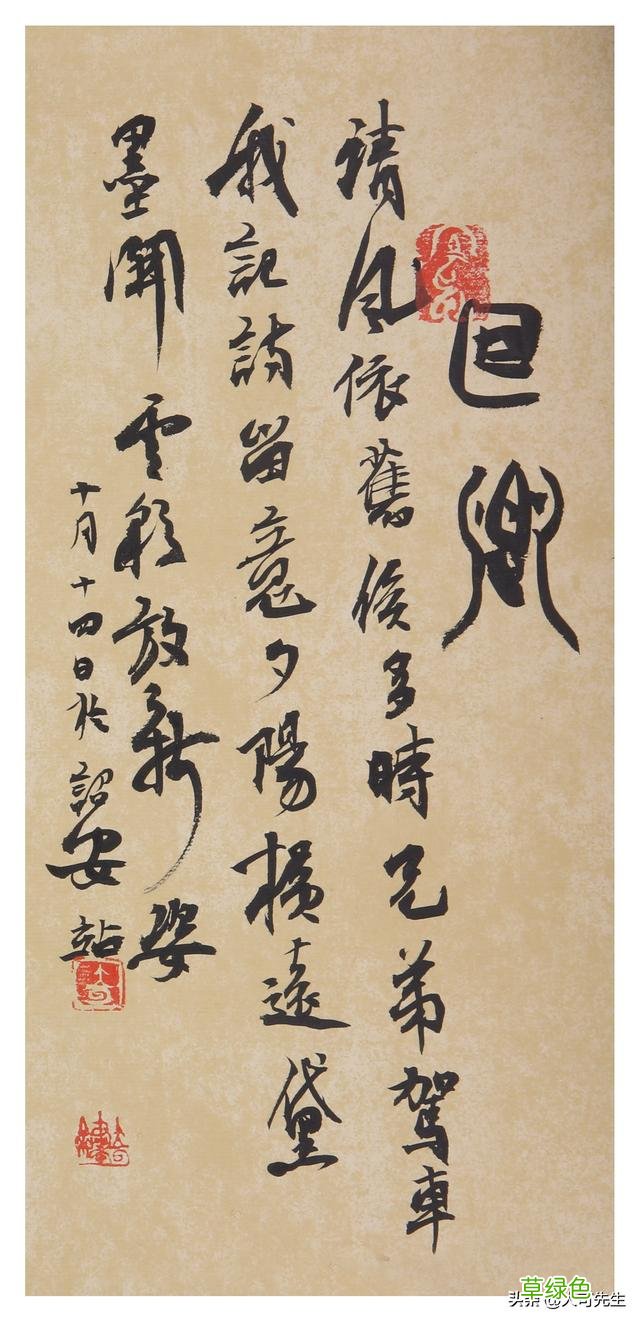 回鄉
清風依舊候多時兄弟駕車
我記詩留意夕陽橫遠黛
墨開雲彩放新姿
十月十四日於詔安站
草绿色
头条 @大可先生